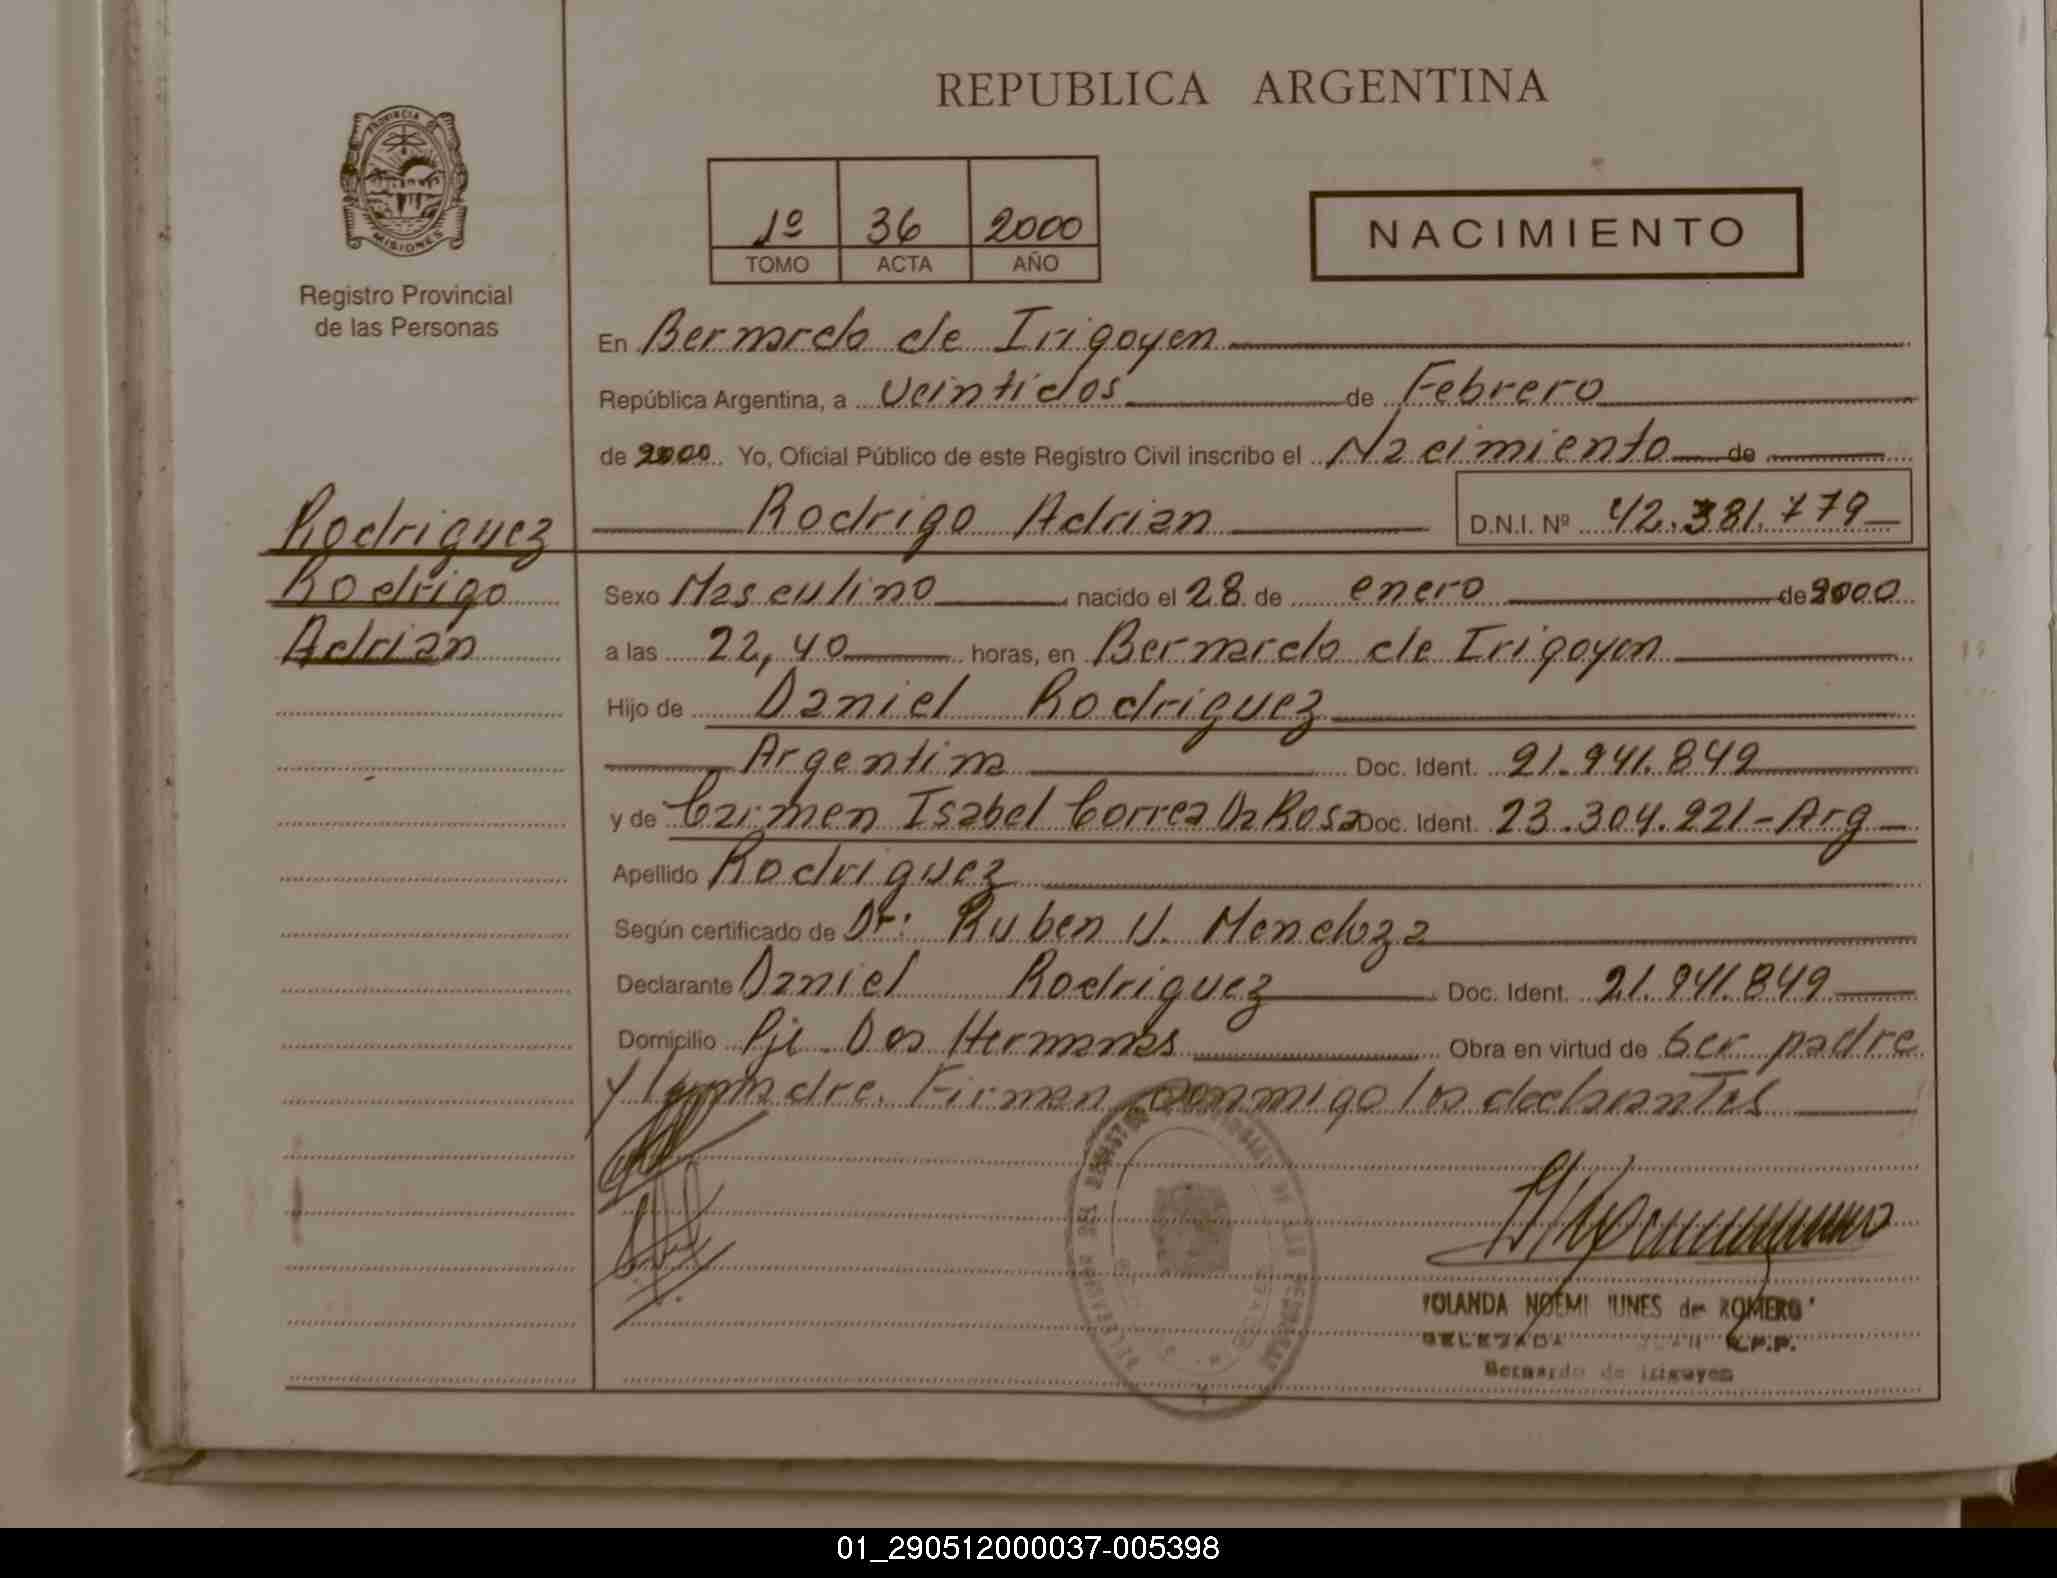 REPUBLICA ARGENTINA
PROVINCIA DE
MISIONES
Registro Provincial
de las Personas
1º 36 2000
TOMO ACTA AÑO
NACIMIENTO
En Bernardo de Irigoyen
República Argentina, a veintidos de Febrero
de 2000 Yo, Oficial Público de este Registro Civil inscribo el Nacimiento de
Rodrigo Adrian D.N.I. Nº 42.381.779
Rodriguez
Rodrigo
Adrian
Sexo Masculino nacido el 28 de enero de 2000
a las 22,40 horas, en Bernardo de Irigoyen
Hijo de Daniel Rodriguez
Argentina Doc. Ident. 21.941.849
y de Carmen Isabel Correa Da Rosa Doc. Ident. 23.304.221-Arg
Apellido Rodriguez
Según certificado de Dr: Ruben U. Mendoza
Declarante Daniel Rodriguez Doc. Ident. 21.941.849
Domicilio Pje Dos Hermanas Obra en virtud de ser padre
y la madre. Firman conmigo los declarantes
YOLANDA NOEMI de ROMERO
DELEGADA R.P.P.
Bernardo de Irigoyen
01_290512000037-005398